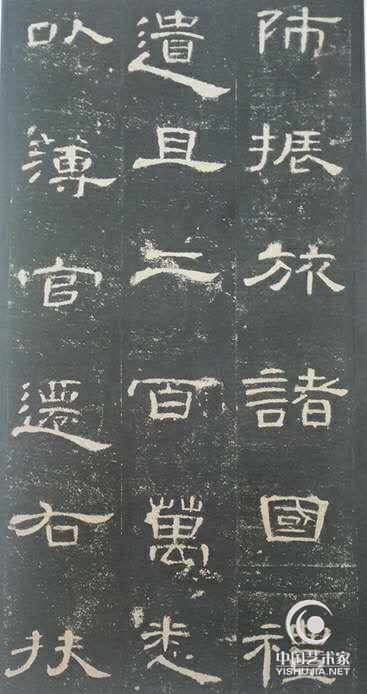 師振旅諸國禮
遺且二百萬悉
以薄官還右扶
中国艺术家
YISHUJIA.NET